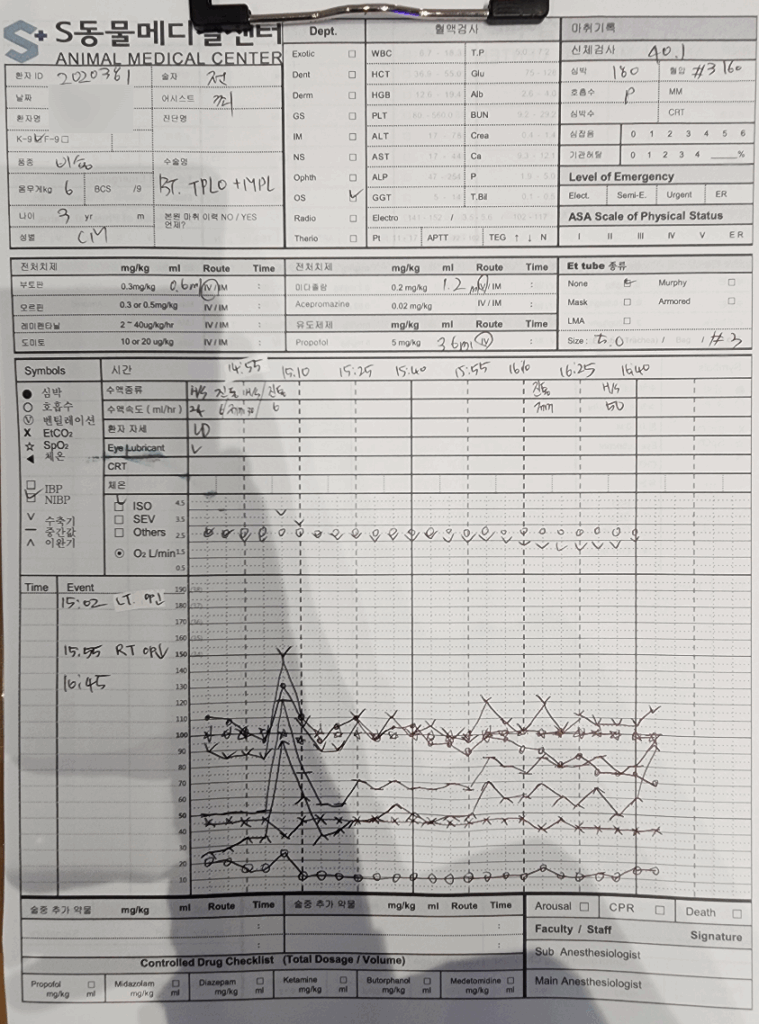 S동물메디컬센터
ANIMAL MEDICAL CENTER
환자 ID 2020381 술자 전
날짜 어시스트
환자명 진단명
K-9 F-9
품종 비숑 수술명
몸무게kg 6 BCS /9 BT. TPLO + MPL
나이 3 yr m 본원 마취 이력 NO / YES
언제?
성별 CM
Dept.
Exotic
Dent
Derm
GS
IM
NS
Ophth
OS
Radio
Therio
혈액검사
WBC T.P
HCT Glu
HGB Alb
PLT BUN
ALT Crea
AST Ca
ALP P
GGT T.Bil
Electro / /
Pt APTT TEG ↑ ↓ N
마취기록
신체검사 40.1
심박 180 혈압 #3 160
호흡수 P MM
심박수 CRT
심잡음 0 1 2 3 4 5 6
기관허탈 0 1 2 3 4 ____%
Level of Emergency
Elect. Semi-E. Urgent ER
ASA Scale of Physical Status
I II III IV V ER
전처치제 mg/kg ml Route Time
부토판 0.3mg/kg 0.6ml IV/IM :
모르핀 0.3 or 0.5mg/kg IV/IM :
레미펜타닐 2~40ug/kg/hr IV/IM :
도미토 10 or 20 ug/kg IV/IM :
전처치제 mg/kg ml Route Time
미다졸람 0.2 mg/kg 1.2 ml IV/IM :
Acepromazine 0.02 mg/kg IV/IM :
유도제제 mg/kg ml Route Time
Propofol 5 mg/kg 3.6ml IV :
Et tube 종류
None Murphy
Mask Armored
LMA
Size : 5.0 / / #3
Symbols
● 심박
○ 호흡수
Ⓥ 벤틸레이션
X EtCO₂
☆ SpO₂
◀ 체온
IBP
NIBP
∨ 수축기
— 중간값
∧ 이완기
시간 14:55 15:10 15:25 15:40 15:55 16:10 16:25 16:40
수액종류 H/S 진통 H/S 진통 진통 H/S
수액속도 (ml/hr) 24 6 50
환자 자세
Eye Lubricant V
CRT
체온
ISO
SEV
Others
O₂ L/min
4.5
3.5
2.5
1.5
0.5
Time Event
15:02 LT.
15:55 RT
16:45
190
180
170
160
150
140
130
120
110
100
90
80
70
60
50
40
30
20
10
술중 추가 약물 mg/kg ml Route Time
:
:
술중 추가 약물 mg/kg ml Route Time
:
:
Controlled Drug Checklist (Total Dosage / Volume)
Propofol mg/kg ml
Midazolam mg/kg ml
Diazepam mg/kg ml
Ketamine mg/kg ml
Butorphanol mg/kg ml
Medetomidine mg/kg ml
Arousal CPR Death
Faculty / Staff Signature
Sub Anesthesiologist
Main Anesthesiologist